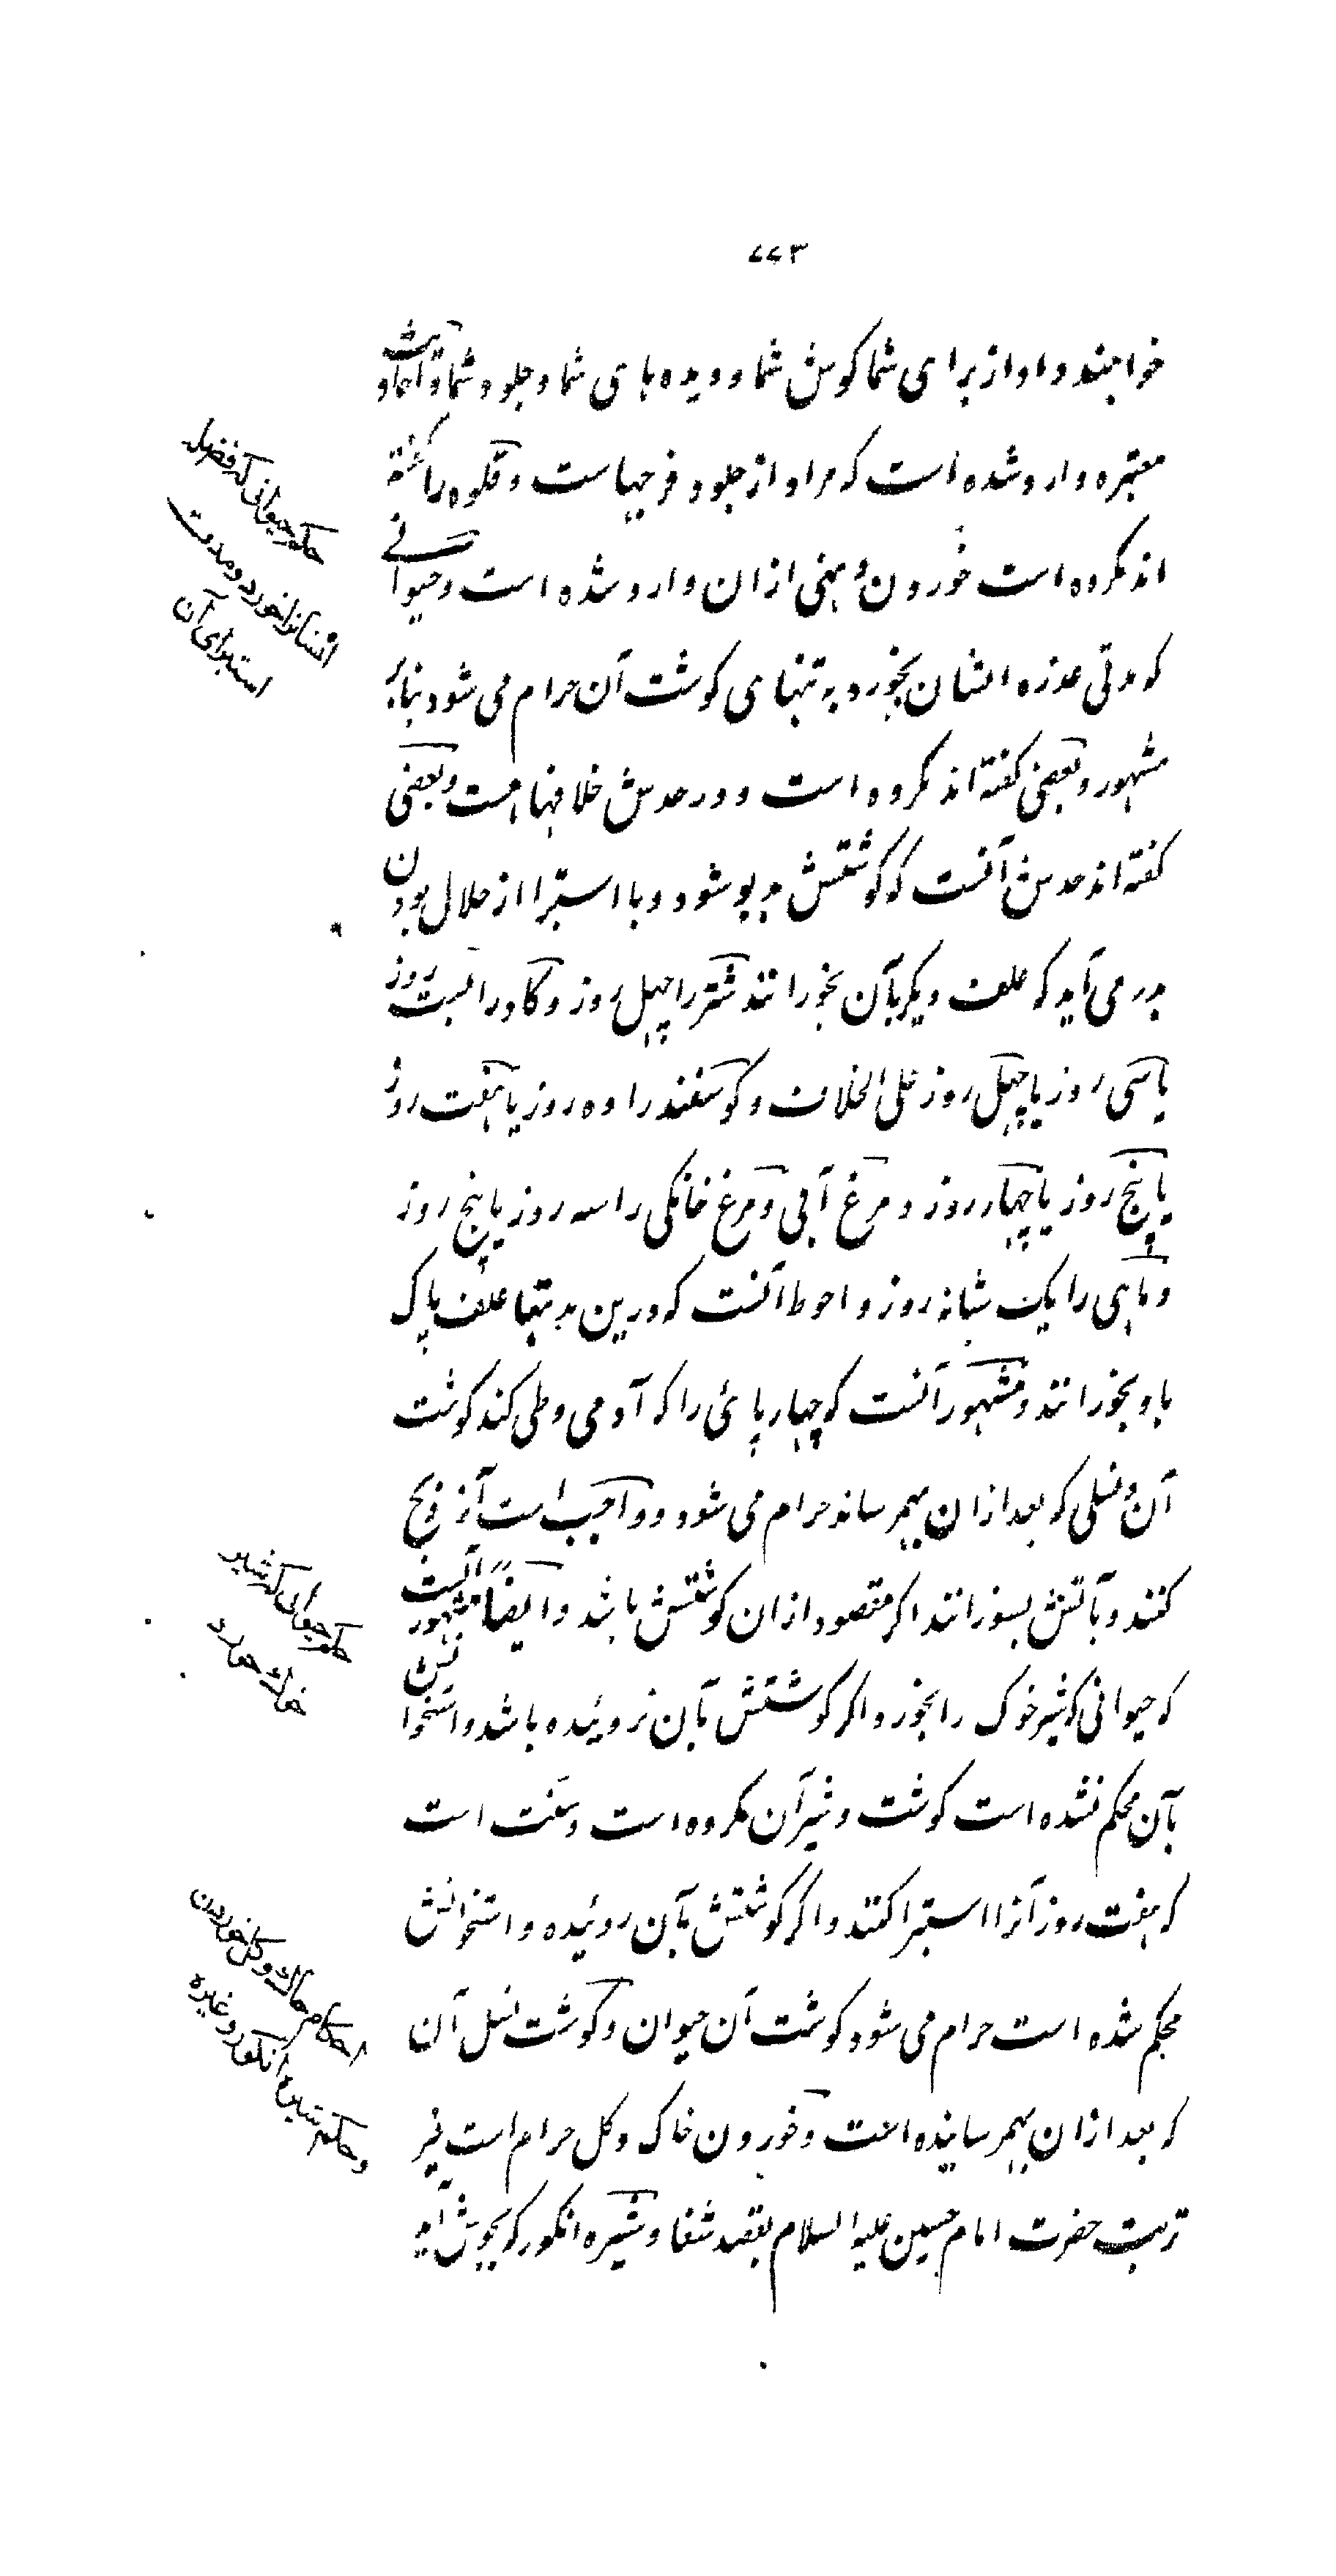 ۷۷۳
خواهند داد از برای شما گوش شما و دیده های شما و جلود شما و احادیث
معتبره وارد شده است که مراد از جلود فرجهاست و قلوه را گفته
اند مکروه است خوردن و نهی از ان وارد شده است و حیوانے
که مدتی عذره انسان بخورد به تنهای گوشت آن حرام می شود بنابر
مشهور و بعضی گفته اند مکروه است و در حدش خلافهاست و بعضی
گفته اند حدش آنست که گوشتش بدبو شود و با استبرا از حلال بودن
بدر می آید که علف دیگر بآن بخورانند شتر را چهل روز و گاو را بیست روز
یا سی روز یا چهل روز علی الخلاف و گوسفند را ده روز یا هفت روز
یا پنج روز یا چهار روز و مرغ آبی و مرغ خانگی را سه روز یا پنج روز
و ماهی را یک شبانه روز و احوط آنست که درین مدتها علف پاک
باو بخورانند و مشهور آنست که چهارپائی را که آدمی وطی کند گوشت
آن و نسلی که بعد از ان بهم رساند حرام می شود و واجب است آنرا ذبح
کنند و بآتش بسوزانند اگر مقصود از ان گوشتش باشد و ایضًا مشهور آنست
که حیوانی که شیر خوک را بخورد اگر گوشتش بآن نروئیده باشد و استخوانش
بآن محکم نشده است گوشت و شیر آن مکروه است و سنت است
که هفت روز آنرا استبرا کنند و اگر گوشتش بآن روئیده و استخوانش
محکم شده است حرام می شود گوشت آن حیوان و گوشت نسل آن
که بعد از ان بهم رسانیده است و خوردن خاک و گل حرام است غیر
تربت حضرت امام حسین علیه السلام بقصد شفا و شیره انگور که بجوش آید
حکم حیوانی که فضله
انسان را خورد و مدت
استبرای آن
حکم حیوانی که شیر
خوک خورد
احکام خاک و گل خوردن
و حکم شیره انگور و غیره